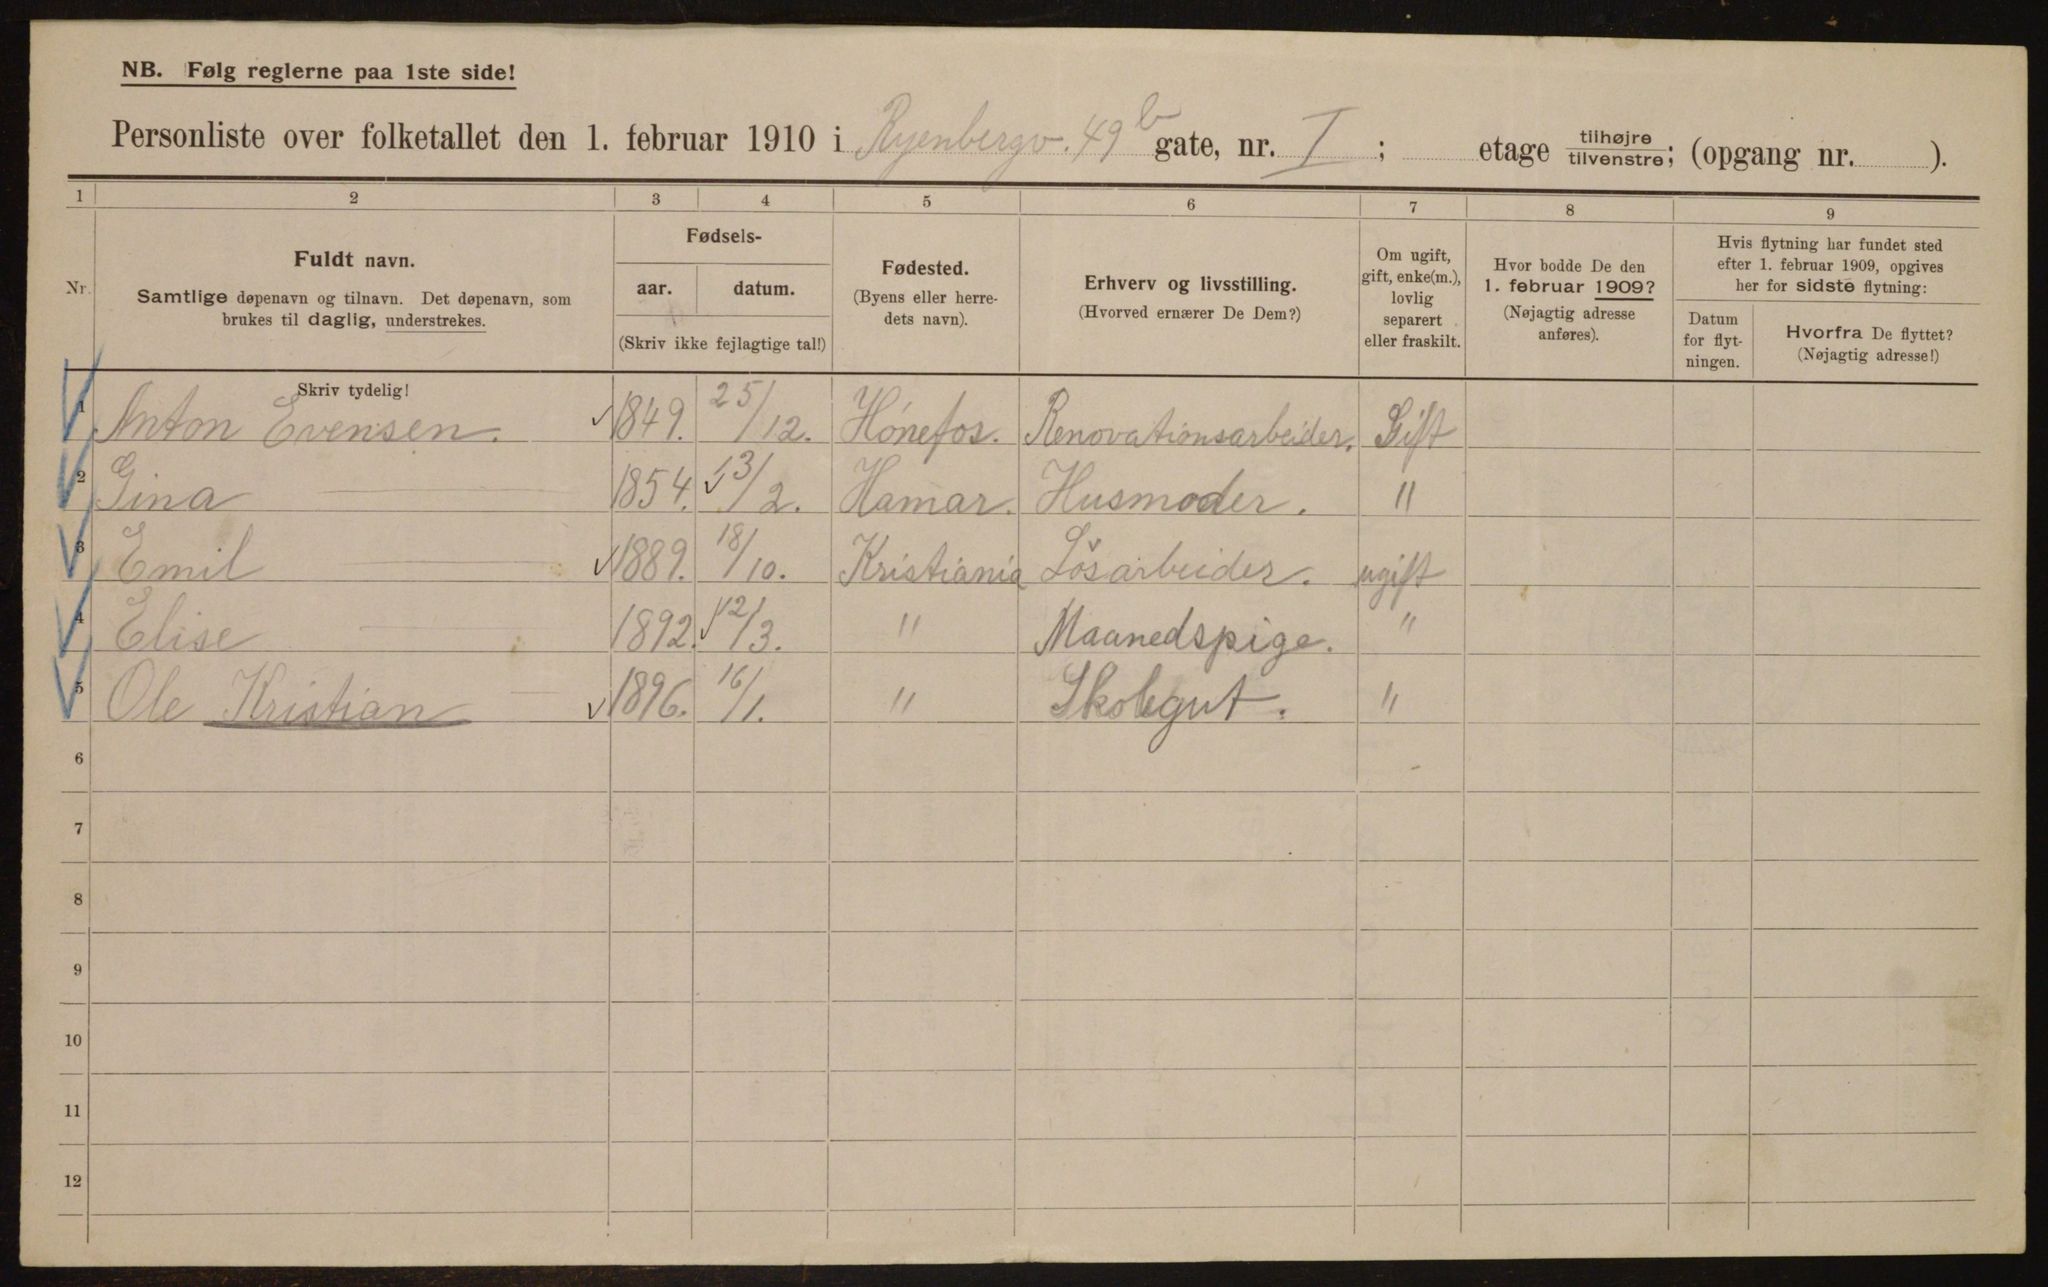 NB. Følg reglerne paa 1ste side!
Personliste over folketallet den 1. februar 1910 i Ryenbergv. 49 b gate, nr. I ; etage tilhøjre / tilvenstre; (opgang nr. ).
1 2 3 4 5 6 7 8 9
Nr.
Fuldt navn.
Samtlige døpenavn og tilnavn. Det døpenavn, som
brukes til daglig, understrekes.
Skriv tydelig!
Fødsels-
aar. datum.
(Skriv ikke fejlagtige tal!)
Fødested.
(Byens eller herre-
dets navn).
Erhverv og livsstilling.
(Hvorved ernærer De Dem?)
Om ugift,
gift, enke(m.),
lovlig
separert
eller fraskilt.
Hvor bodde De den
1. februar 1909?
(Nøjagtig adresse
anføres).
Hvis flytning har fundet sted
efter 1. februar 1909, opgives
her for sidste flytning:
Datum
for flyt-
ningen.
Hvorfra De flyttet?
(Nøjagtig adresse!)
1 Anton Evensen. 1849. 25/12. Hónefos. Renovationsarbeider. Gift
2 Gina 1854. 13/2. Hamar. Husmoder. "
3 Emil 1889. 18/10. Kristiania Lösarbeider. ugift
4 Elise 1892. 12/3. " Maanedspige. "
5 Ole Kristian 1896. 16/1. " Skolegut. "
6
7
8
9
10
11
12